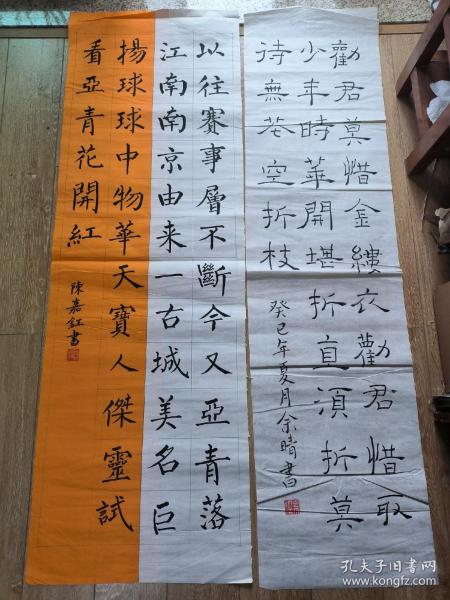 勸君莫惜金縷衣勸君惜取
少年時華開堪折直須折莫
待無花空折枝
癸巳年夏月余晴書
以往賽事層不斷今又亞青落
江南南京由来一古城美名巨
揚球球中物華天寶人傑靈試
看亞青花開紅
陳嘉釭書
孔夫子旧书网
www.kongfz.com